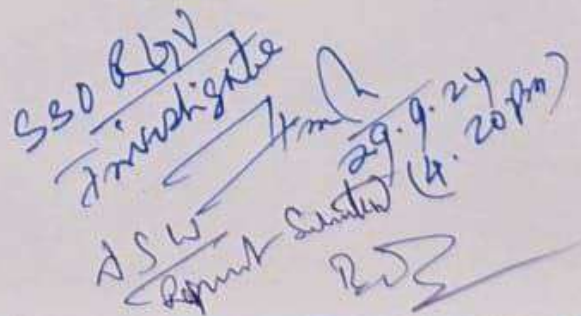 SSO RGV
Investigate
29.9.24
(4.20pm)
DSW
Report Submitted